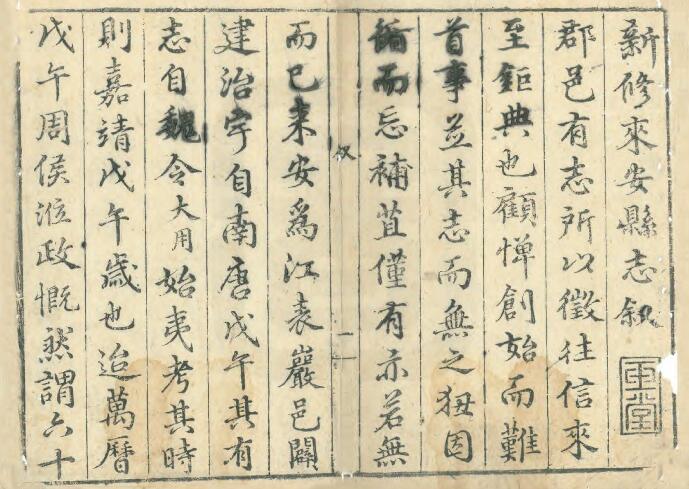 新修來安縣志叙
郡邑有志所以徵往信來
至鉅典也顧憚創始而難
首事並其志而無之狃因
循而忘補苴僅有亦若無
叙
一
而已来安爲江表巖邑闢
建治宇自南唐戊午其有
志自魏令大用始夷考其時
則嘉靖戊午歲也迨萬曆
戊午周侯涖政慨然謂六十